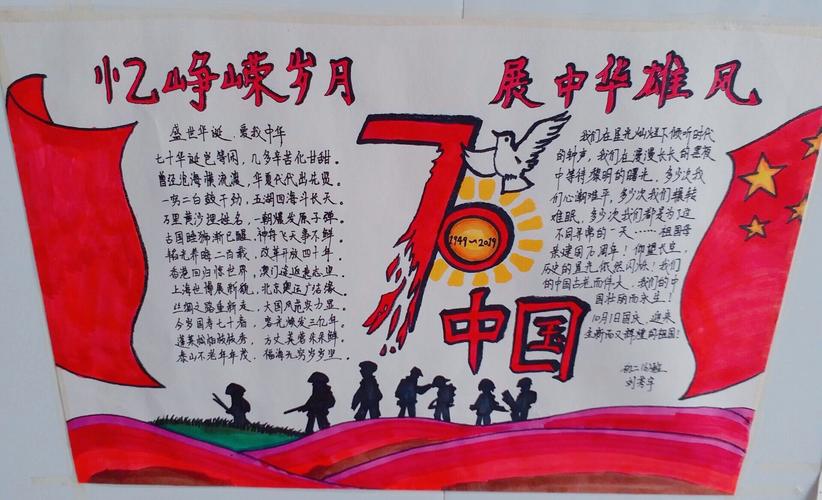 忆峥嵘岁月 展中华雄风
盛世华诞、爱我中华
七十华诞岂等闲，几多辛苦化甘甜。
曾经沧海横流渡，华夏代代出贤。
一穷二白鼓干劲，五湖四海斗长天。
万里黄沙埋姓名，一朝爆发原子弹。
古国睡狮渐已醒，神舟飞天事不鲜。
韬光养晦二百载，改革开放四十年。
香港回归惊世界，澳门
上海世博展新貌，北京奥运广结缘。
丝绸之路重新走，大国风范实力显。
今岁国寿七十春，焕发三亿年。
蓬莱
泰山不老年年茂，福海无穷岁岁
70
1949~2019
中国
我们在星光灿烂下倾听时代
的钟声，我们在漫漫长长的黑夜
中等待黎明的曙光，多少次我
们心潮难平，多少次我们辗转
难眠，多少次我们都是为了这
不同寻常的一天……祖国母
亲建国70周年！仰望长空，
历史的星光依然闪烁！我们
的中国古老而伟大，我们的中
国壮丽而永生！
10月1日国庆，迎来
全新而又辉煌的祖国！
初二
刘